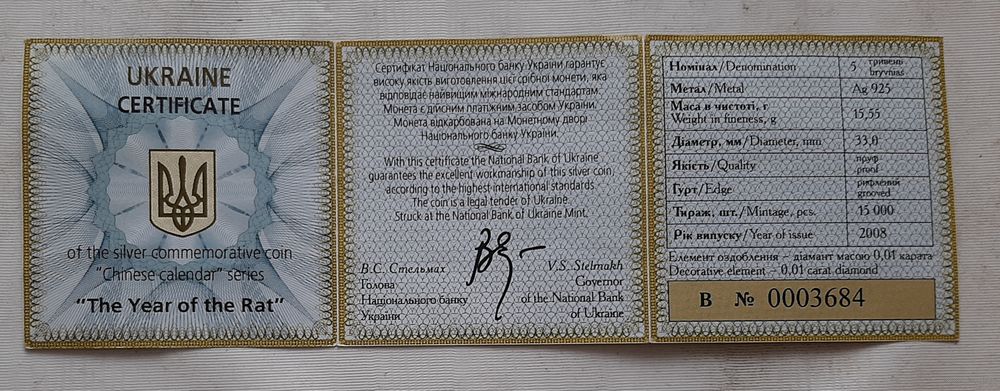 UKRAINE
CERTIFICATE
of the silver commemorative coin
"Chinese calendar" series
"The Year of the Rat"
Сертифікат Національного банку України гарантує
високу якість виготовлення цієї срібної монети, яка
відповідає найвищим міжнародним стандартам.
Монета є дійсним платіжним засобом України.
Монета відкарбована на Монетному дворі
Національного банку України.
With this certificate the National Bank of Ukraine
guarantees the excellent workmanship of this silver coin
according to the highest international standards.
The coin is a legal tender of Ukraine.
Struck at the National Bank of Ukraine Mint.
В.С. Стельмах
Голова
Національного банку
України
V.S. Stelmakh
Governor
of the National Bank
of Ukraine
Номінал/Denomination 5 гривень hryvnias
Метал/Metal Ag 925
Маса в чистоті, г
Weight in fineness, g 15,55
Діаметр, мм/Diameter, mm 33,0
Якість/Quality пруф proof
Гурт/Edge рифлений grooved
Тираж, шт./Mintage, pcs. 15 000
Рік випуску/Year of issue 2008
Елемент оздоблення – діамант масою 0,01 карата
Decorative element – 0,01 carat diamond
В № 0003684